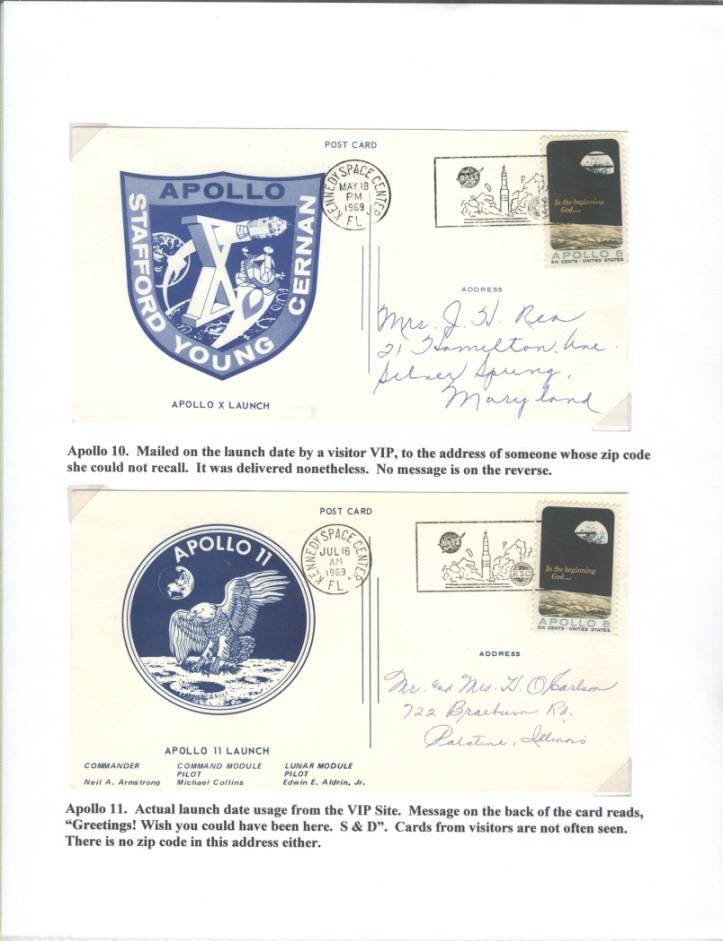 POST CARD
APOLLO
STAFFORD
YOUNG
CERNAN
KENNEDY SPACE CENTER
MAY 18
PM
1969
FL
NASA
In the beginning
God...
APOLLO 8
SIX CENTS · UNITED STATES
ADDRESS
Mrs. J. H. Rea
21 Hamilton Ave.
Silver Spring,
Maryland
APOLLO X LAUNCH
Apollo 10. Mailed on the launch date by a visitor VIP, to the address of someone whose zip code
she could not recall. It was delivered nonetheless. No message is on the reverse.
POST CARD
APOLLO 11
KENNEDY SPACE CENTER
JUL 16
AM
1969
FL
NASA
KSC
In the beginning
God...
APOLLO 8
SIX CENTS · UNITED STATES
ADDRESS
Mr. and Mrs. H. O. Carlson
722 Braeburn Rd.
Palatine, Illinois
APOLLO 11 LAUNCH
COMMANDER COMMAND MODULE LUNAR MODULE
PILOT PILOT
Neil A. Armstrong Michael Collins Edwin E. Aldrin, Jr.
Apollo 11. Actual launch date usage from the VIP Site. Message on the back of the card reads,
“Greetings! Wish you could have been here. S & D”. Cards from visitors are not often seen.
There is no zip code in this address either.